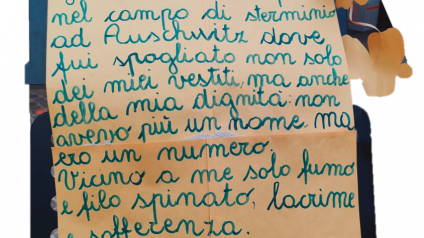 nel campo di sterminio
ad Auschwitz dove
fui spogliato non solo
dei miei vestiti, ma anche
della mia dignità: non
avevo più un nome, ma
ero un numero.
Vicino a me solo fumo
e filo spinato, lacrime
e sofferenza.